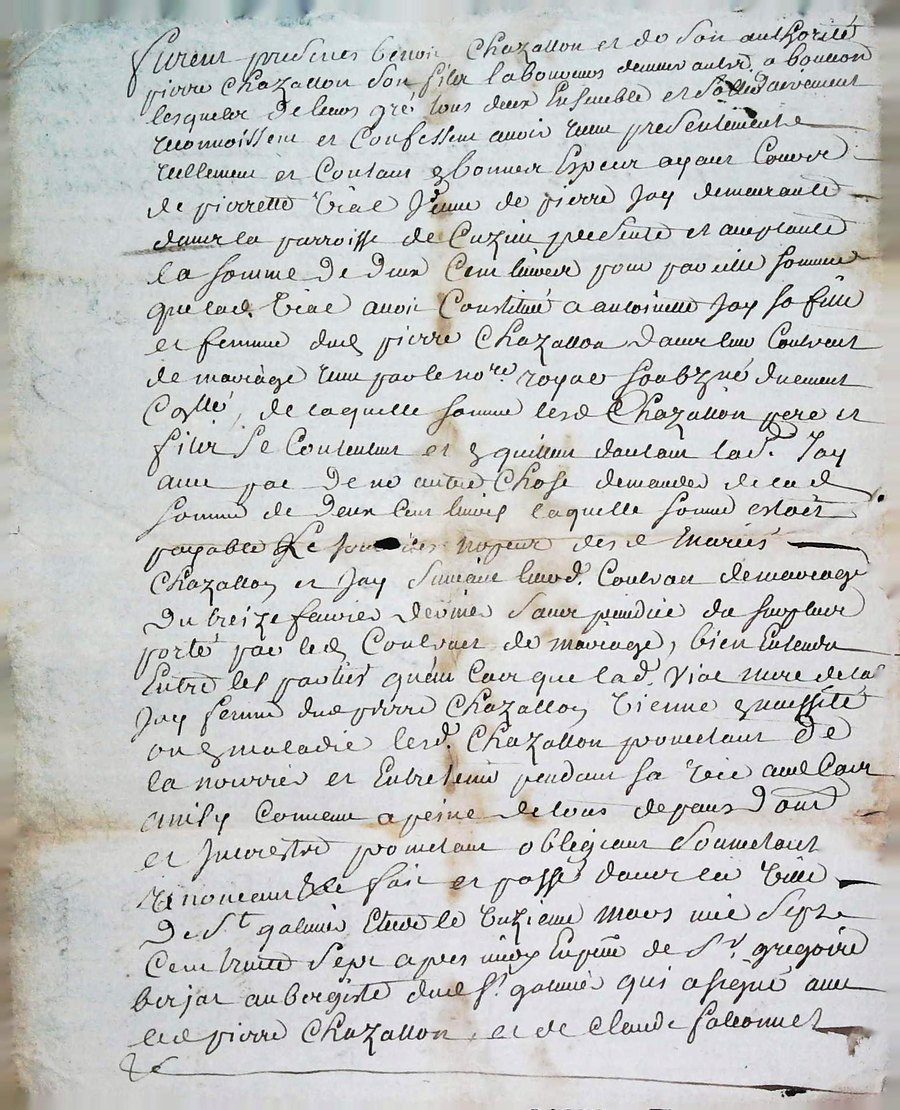 furent presents benoit Chazallon et de son authorité
pierre Chazallon son fils laboureurs demeurants a
lesquels de leurs gré tous deux Ensemble et solidairement
reconnoissent et Confessent avoir reçeu presentement
réellement et Contant bonnes Espece ayant Cours
de pierrette vial veuve de pierre Jay demeurante
dans la parroisse de Cuzieu presente et acceptante
la somme de deux Cent livres pour pareille somme
que lad. vial avoit Constitué a antoinette Jay sa fille
et femme dud pierre Chazallon dans leur Contract
de mariage reçeu par le nore. royal soubzné duement
Collé, de laquelle somme lesd Chazallon pere et
fils se Contentent et quittent lad. Jay
avec pac de ne autre Chose demander de lad
somme de deux Cent livres laquelle somme estoit
payable Le des d mariés
Chazallon et Jay suivant leurd. Contract de mariage
du treize fevrier dernier sans prejudice du surplus
porté par led Contract de mariage, bien Entendu
Entre les parties qu'au Cas que lad. Vial mere de la
Jay femme dud pierre Chazallon vienne
ou maladie lesd. Chazallon promettent de
la nourrir et Entretenir pendant sa vie avec
Convenu a peine de tous depans
et promettant obligeant soumettant
renonceant &c fait et passé dans la ville
de St. galmier Etude le unzieme mars mil sept
Cent trente sept apres midy En pnce de Sr. gregoire
berjat aubergiste dud St. galmier qui a signé avec
led pierre Chazallon, et de Claude falconnet